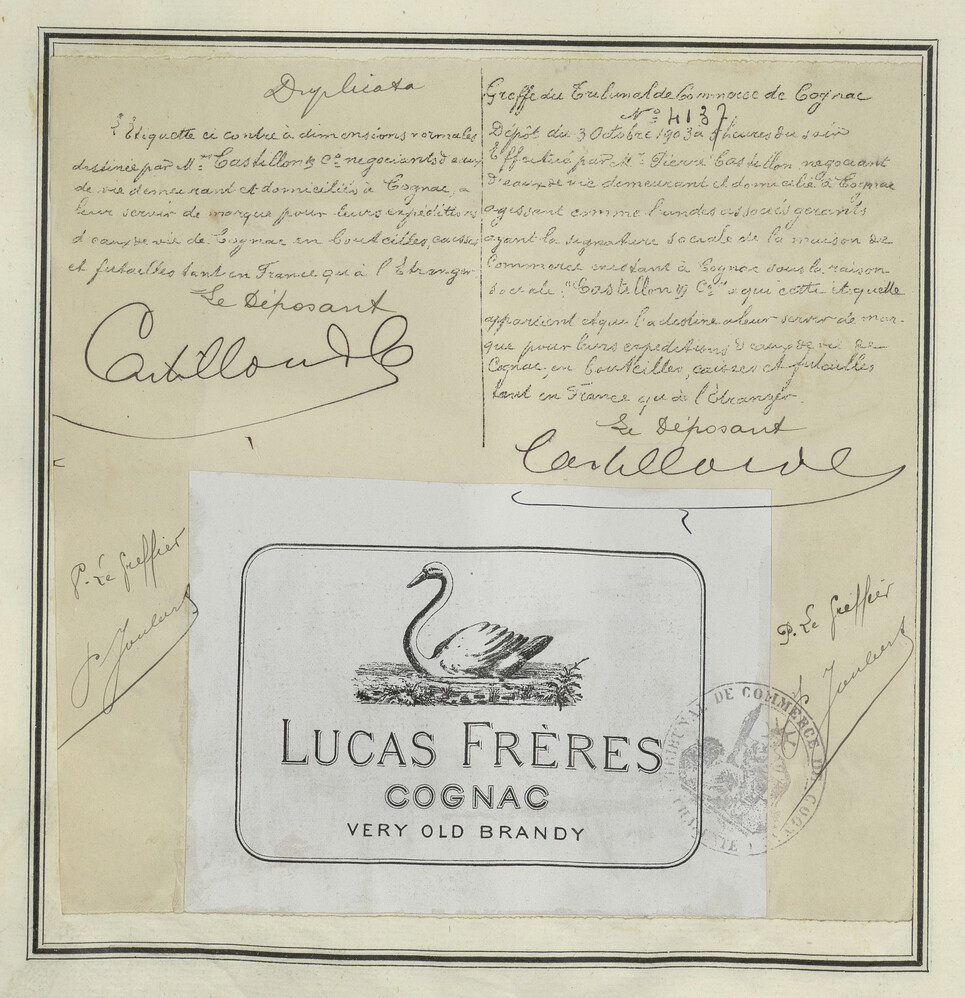 Duplicata
Etiquette ci contre à dimensions normales
destinée par M.rs Castillon & Co negociants d'eaux
de vie demeurant et domiciliés à Cognac, a
leur servir de marque pour leurs expéditions
d'eaux de vie de Cognac en bouteilles, caisses
et futailles tant en France qu'à l'Etranger
Le Déposant
Castillon & Co
Greffe du Tribunal de Commerce de Cognac
No 4137
Dépôt du 3 Octobre 1903 a heures du soir
Effectué par Mr Pierre Castillon negociant
d'eaux de vie demeurant et domicilié à Cognac
agissant comme l'un des associés gerants
ayant la signature sociale de la maison de
Commerce existant à Cognac sous la raison
sociale: "Castillon & Co" a qui cette étiquette
appartient et que l'a destine a leur servir de mar-
que pour leurs expeditions d'eaux de vie de
Cognac, en bouteilles, caisses et futailles
tant en France qu'à l'Étranger.
Le Déposant
Castillon & Co
P. Le Greffier
Joubert
LUCAS FRÈRES
COGNAC
VERY OLD BRANDY
P. Le Greffier
Joubert
TRIBUNAL DE COMMERCE DE COGNAC